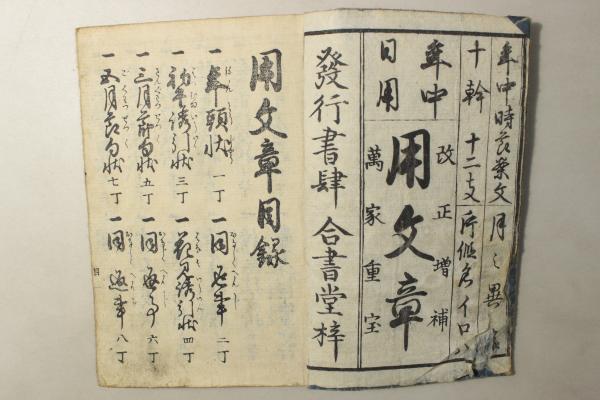 年中時候案文月々異名
十幹 十二支 片假名イロハ
年中
日用
改正増補
用文章
萬家重宝
發行書肆 合書堂梓
用文章目録
一年頭状 一丁
一同返事 二丁
一初午誘引状 三丁
一花見誘引状 四丁
一三月節句状 五丁
一同返事 六丁
一五月節句状 七丁
一同返事 八丁